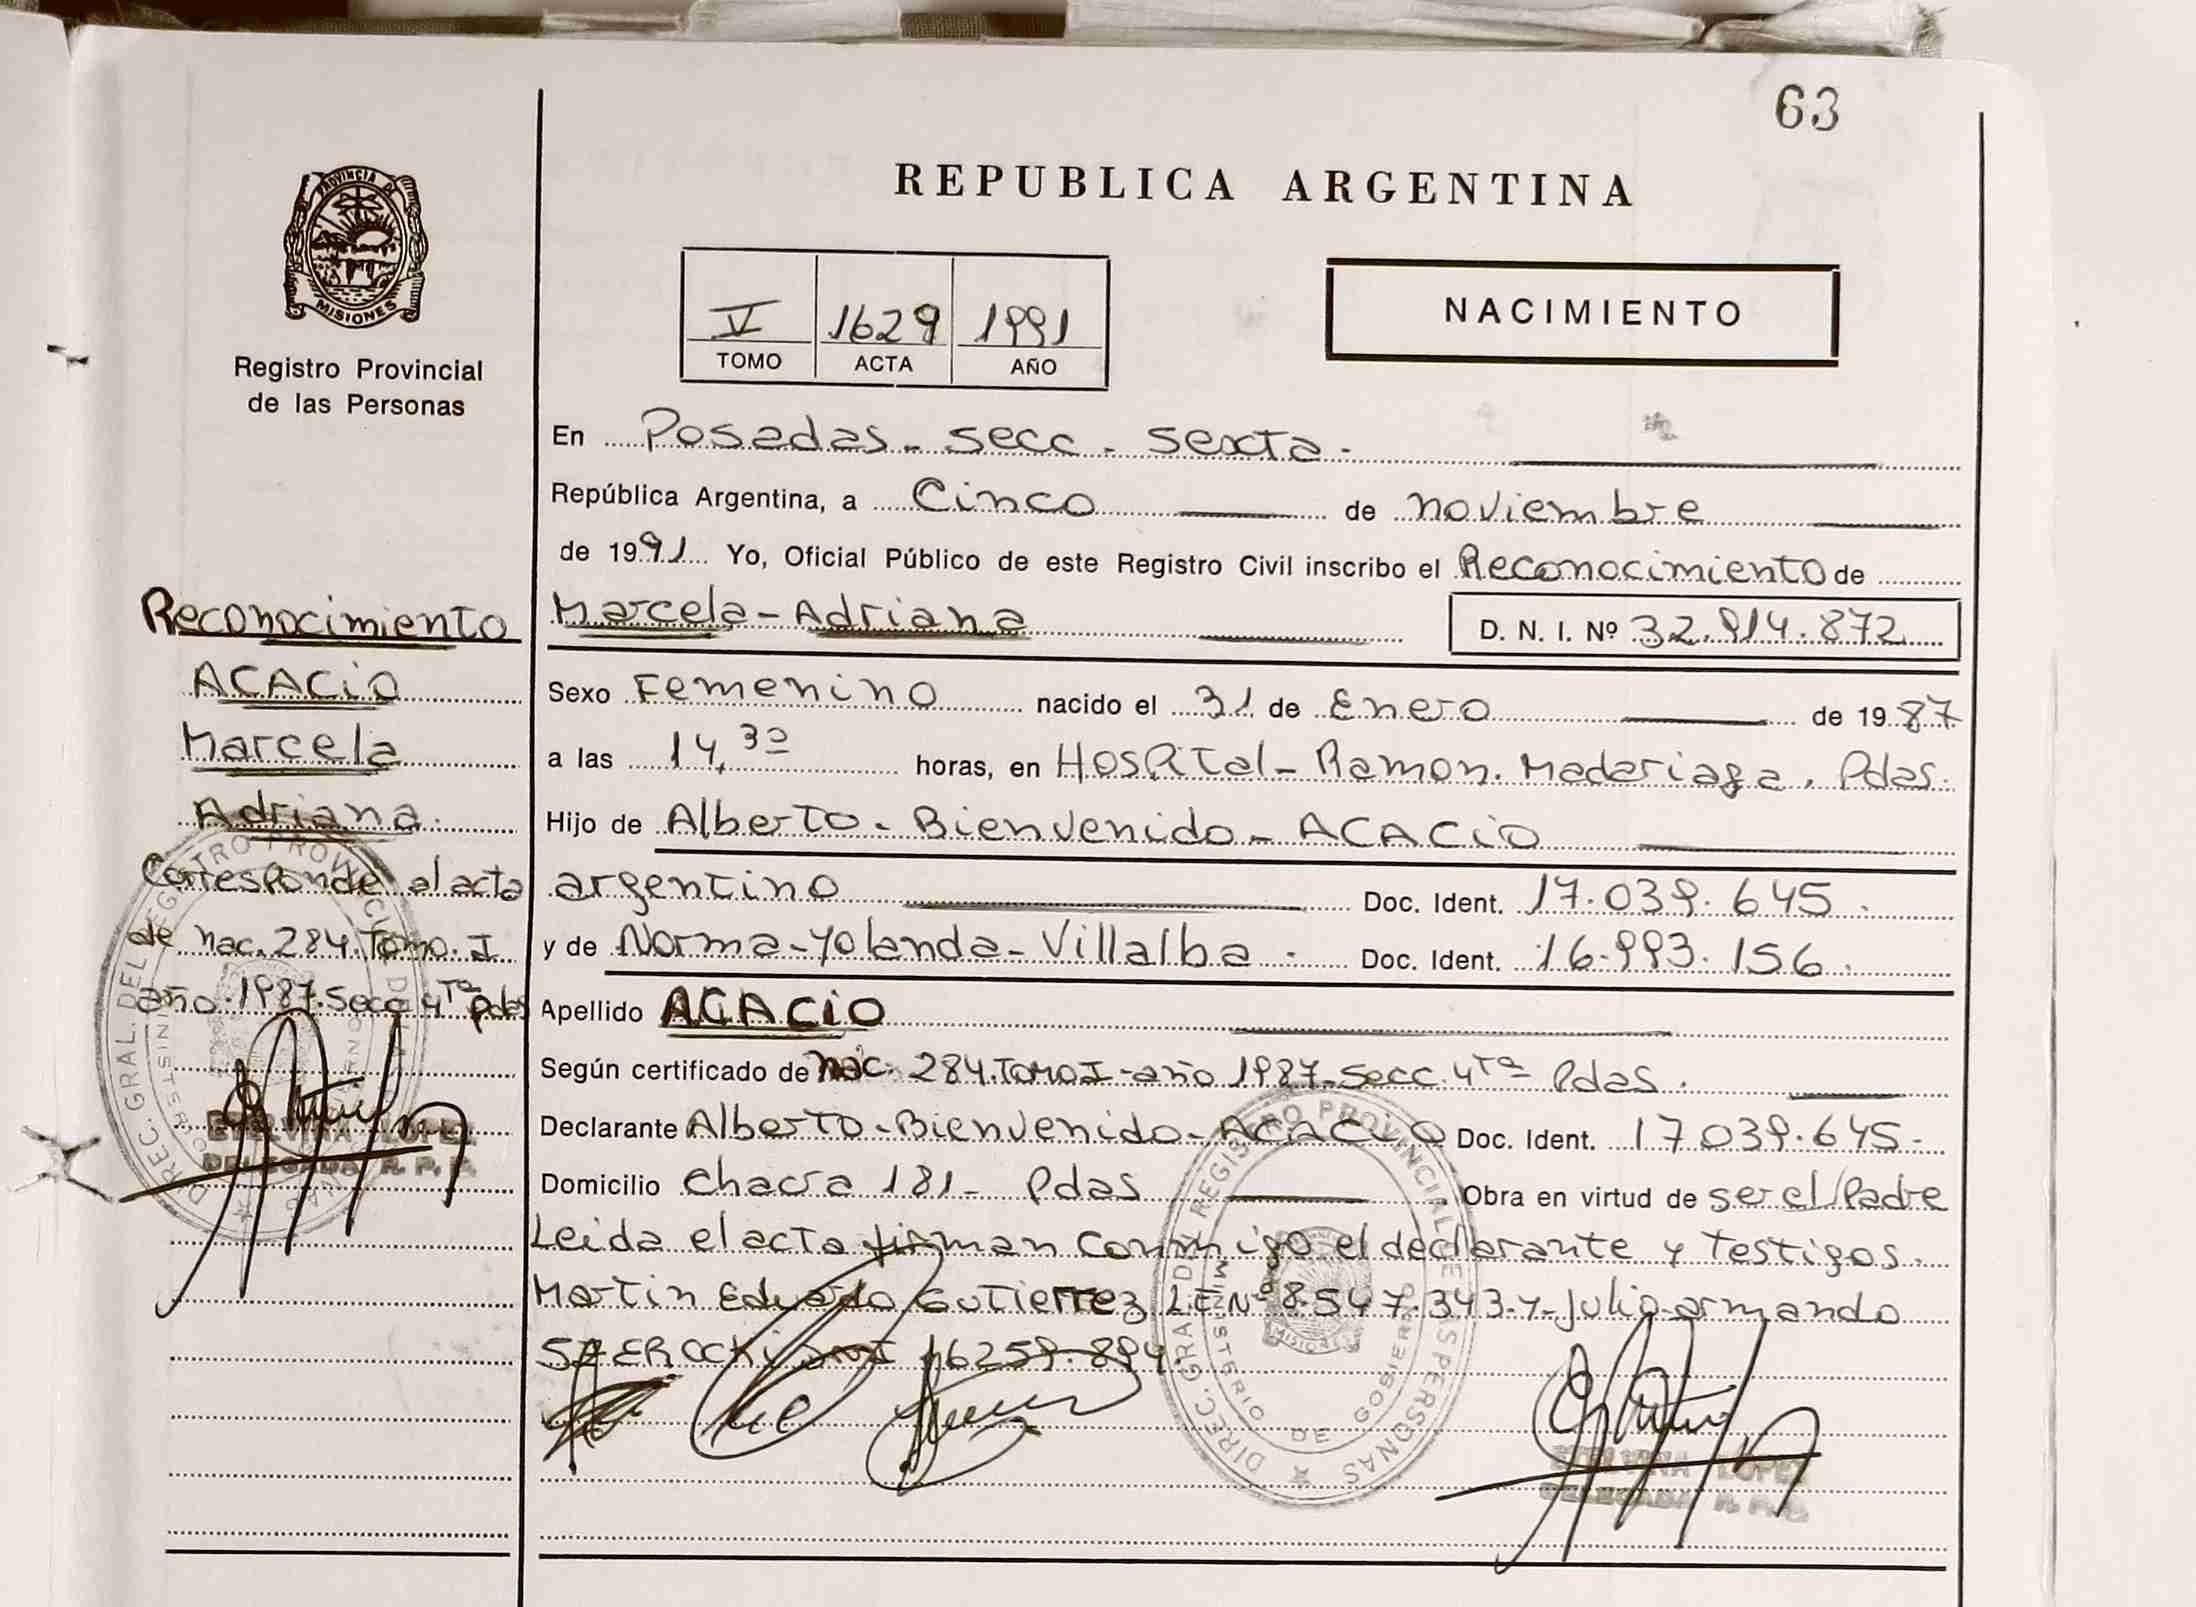 63
REPUBLICA ARGENTINA
PROVINCIA DE
MISIONES
Registro Provincial
de las Personas
V 1629 1991
TOMO ACTA AÑO
NACIMIENTO
En Posadas - secc. sexta.
República Argentina, a Cinco de noviembre
de 1991 Yo, Oficial Público de este Registro Civil inscribo el Reconocimiento de
Marcela - Adriana D. N. I. Nº 32.914.872
Sexo Femenino nacido el 31 de Enero de 1987
a las 14,30 horas, en Hospital - Ramon. Madariaga. Pdas.
Hijo de Alberto - Bienvenido - ACACIO
argentino Doc. Ident. 17.039.645.
y de Norma - Yolanda - Villalba. Doc. Ident. 16.993.156.
Apellido ACACIO
Según certificado de nac. 284. Tomo I - año 1987 - secc. 4ta Pdas.
Declarante Alberto - Bienvenido - Acacio Doc. Ident. 17.039.645.
Domicilio chacra 181 - Pdas Obra en virtud de ser el Padre
Leida el acta firman conmigo el declarante y testigos.
Martin Eduardo Gutierrez L E Nº 8.547.343 - y - Julio - armando
16259.894
Reconocimiento
ACACIO
Marcela
Adriana.
Corresponde al acta
de nac. 284. Tomo. I
año. 1987. secc 4ta pdas
ETELVINA LOPEZ
DELEGADA R. P. P.
DIREC. GRAL. DEL REGISTRO PROVINCIAL DE LAS PERSONAS
MINISTERIO DE GOBIERNO
DIREC. GRAL. DEL REGISTRO PROVINCIAL DE LAS PERSONAS
MINISTERIO DE GOBIERNO
MISIONES
ETELVINA LOPEZ
DELEGADA R. P. P.